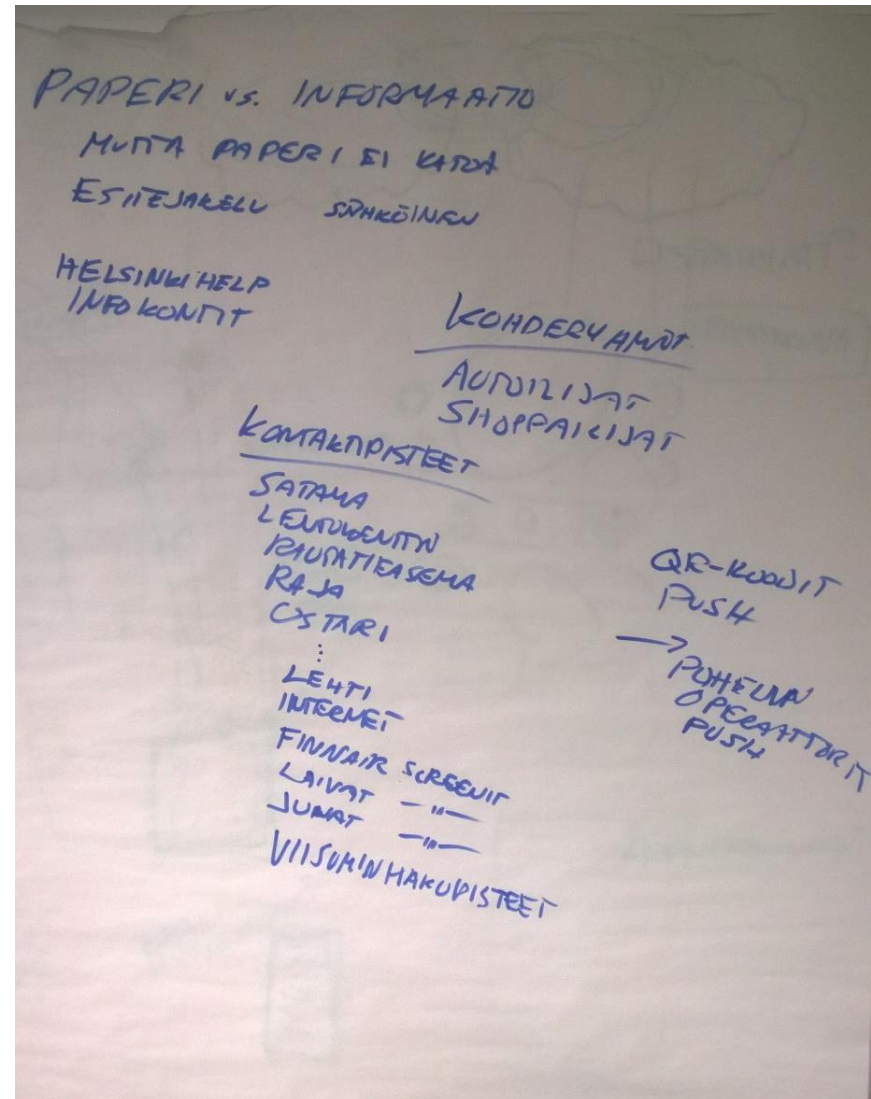 PAPERI vs. INFORMAATIO
MUTTA PAPERI EI KATOA
ESITEJAKELU SÄHKÖINEN
HELSINKI HELP
INFOKONTIT
KOHDERYHMÄT
AUTOILIJAT
SHOPPAILIJAT
KONTAKTIPISTEET
SATAMA
LENTOKENTTÄ
RAUTATIEASEMA
RAJA
OSTARI
⋮
LEHTI
INTERNET
FINNAIR SCREENIT
LAIVAT —"—
JUNAT —"—
VIISUMINHAKUPISTEET
QR-KOODIT
PUSH
→
PUHELIN
OPERAATTORIT
PUSH